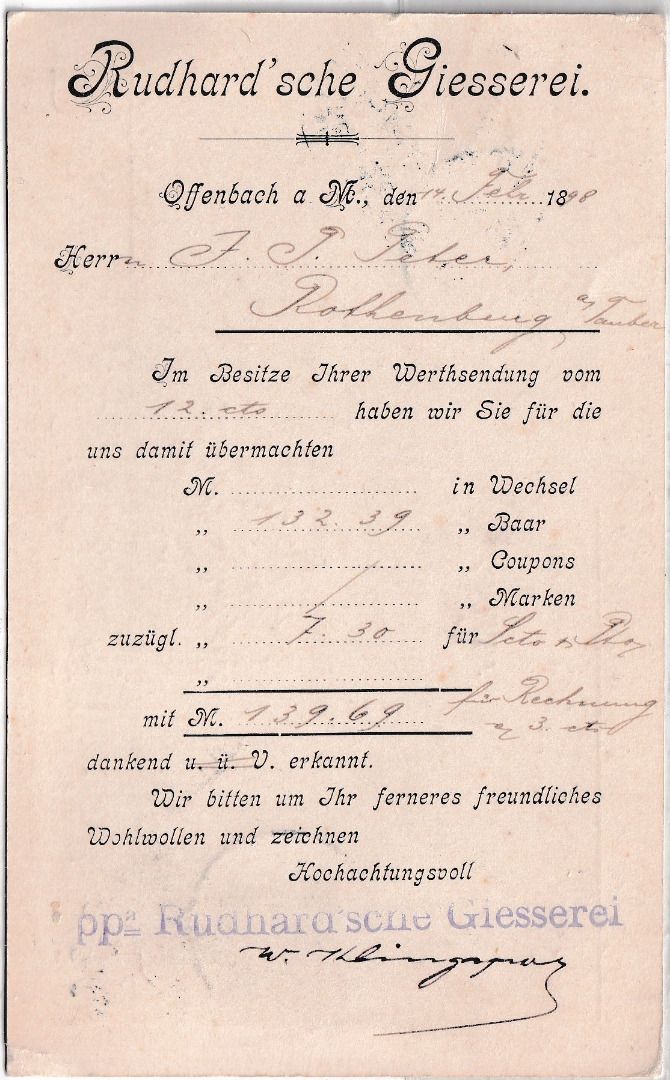 Rudhard'sche Giesserei.
Offenbach a M., den 14. Febr. 1898
Herrn J. P. Peter,
Rothenburg a/Tauber
Im Besitze Ihrer Werthsendung vom
12. cts haben wir Sie für die
uns damit übermachten
M. in Wechsel
„ 132.39 „ Baar
„ „ Coupons
„ „ Marken
zuzügl. „ 7.30 für Scto
„
für Rechnung
mit M. 139.69 3. cts
dankend u. ü. V. erkannt.
Wir bitten um Ihr ferneres freundliches
Wohlwollen und zeichnen
Hochachtungsvoll
ppa Rudhard'sche Giesserei
W. Klingspor